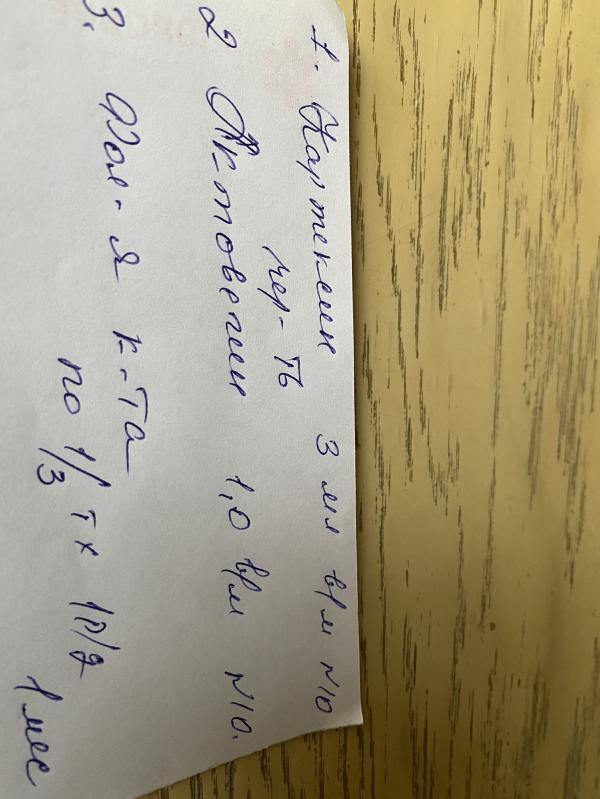 1. Кортексин 3 мл в/м N10
чер-ть
2 Актовегин 1,0 в/м N10.
3. Фол-я к-та
по 1/3 т х 1р/д
1 мес